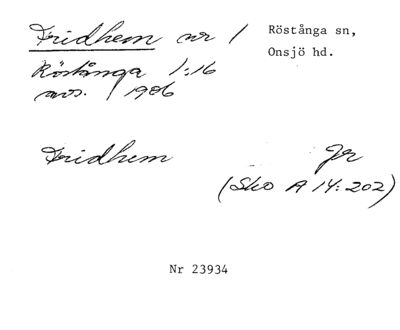 Fridhem nr 1
Röstånga sn,
Onsjö hd.
Röstånga 1:16
avs. 1906
Fridhem Jr
(Sko A 14:202)
Nr 23934